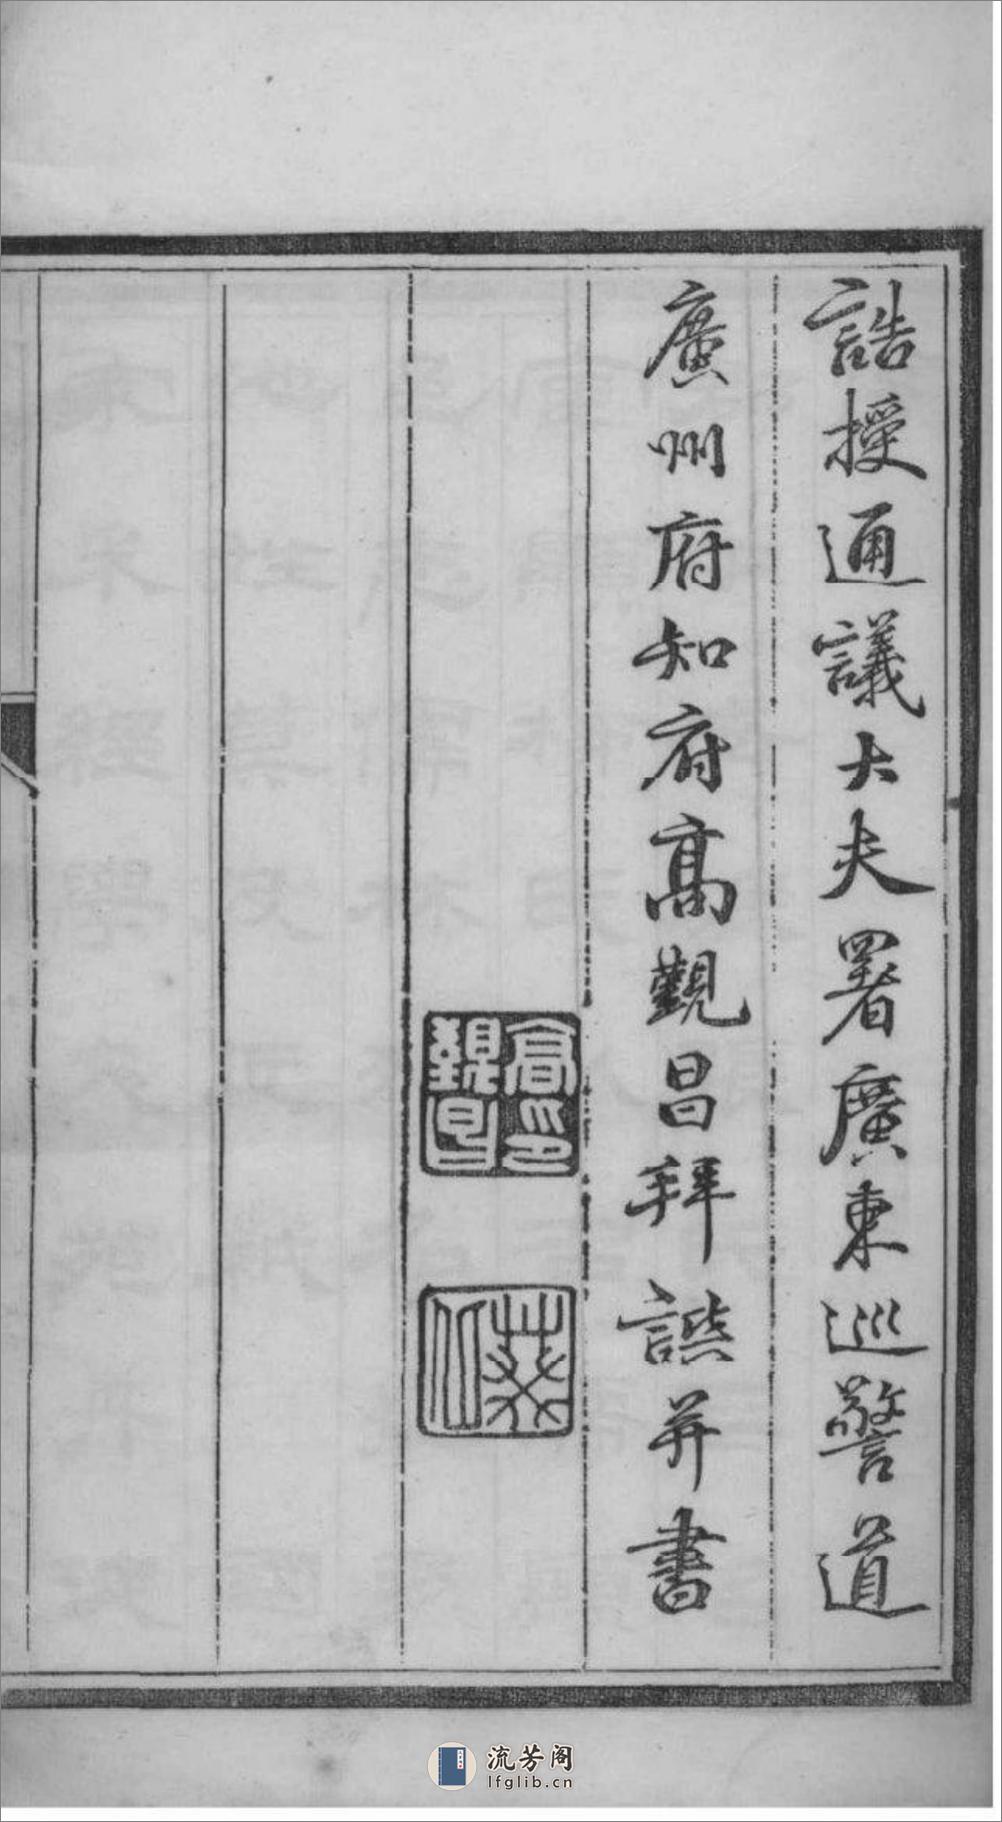 誥授通議大夫署廣東巡警道
廣州府知府高覲昌拜譔并書
高印覲昌
葵北
流芳阁
lfglib.cn